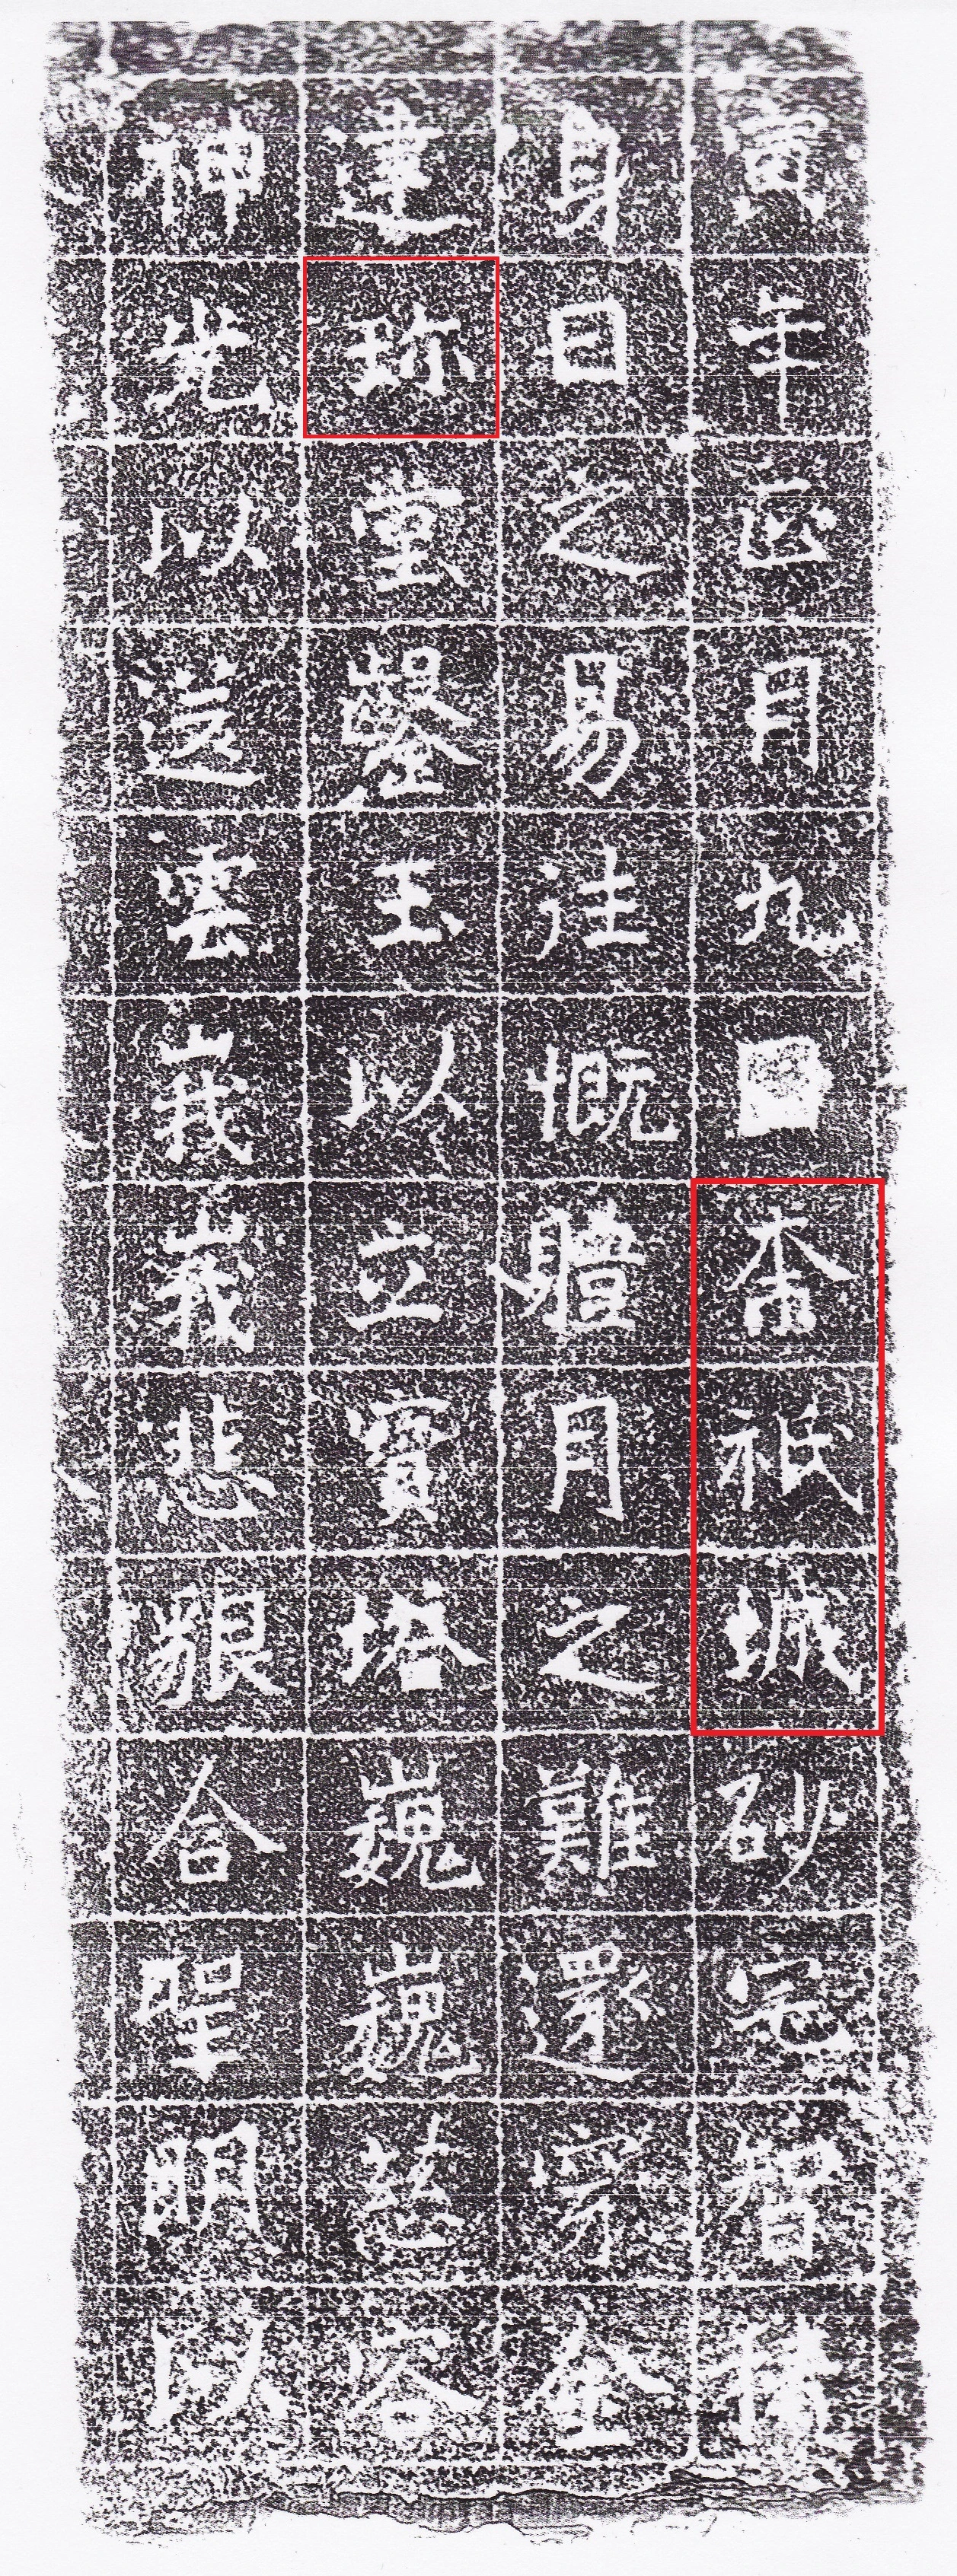 寅年正月九日奈祇城砂宅智積
身日之易往慨體月之難還穿金
建珎堂鑿玉以立寶塔巍巍慈容
神光以送雲峩峩悲貇含聖明以